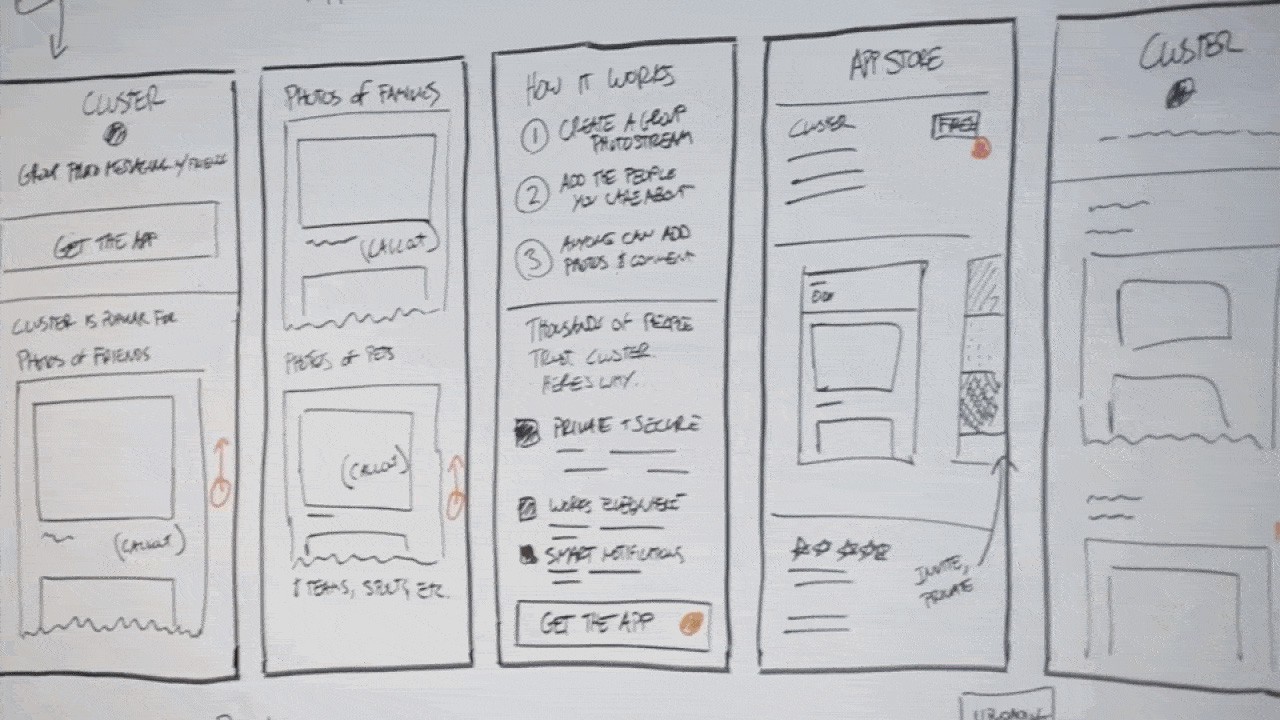 CLUSTER
GROUP PHOTO MESSAGING W/ FRIENDS
GET THE APP
CLUSTER IS POPULAR FOR
PHOTOS OF FRIENDS
(CALLOUT)
PHOTOS OF FAMILIES
(CALLOUT)
PHOTOS OF PETS
(CALLOUT)
& TEAMS, SPORTS, ETC.
HOW IT WORKS
1 CREATE A GROUP
PHOTOSTREAM
2 ADD THE PEOPLE
YOU CARE ABOUT
3 ANYONE CAN ADD
PHOTOS & COMMENT
THOUSANDS OF PEOPLE
TRUST CLUSTER.
HERE'S WHY.
PRIVATE + SECURE
WORKS EVERYWHERE
SMART NOTIFICATIONS
GET THE APP
APP STORE
CLUSTER
FREE
INVITE,
PRIVATE
CLUSTER